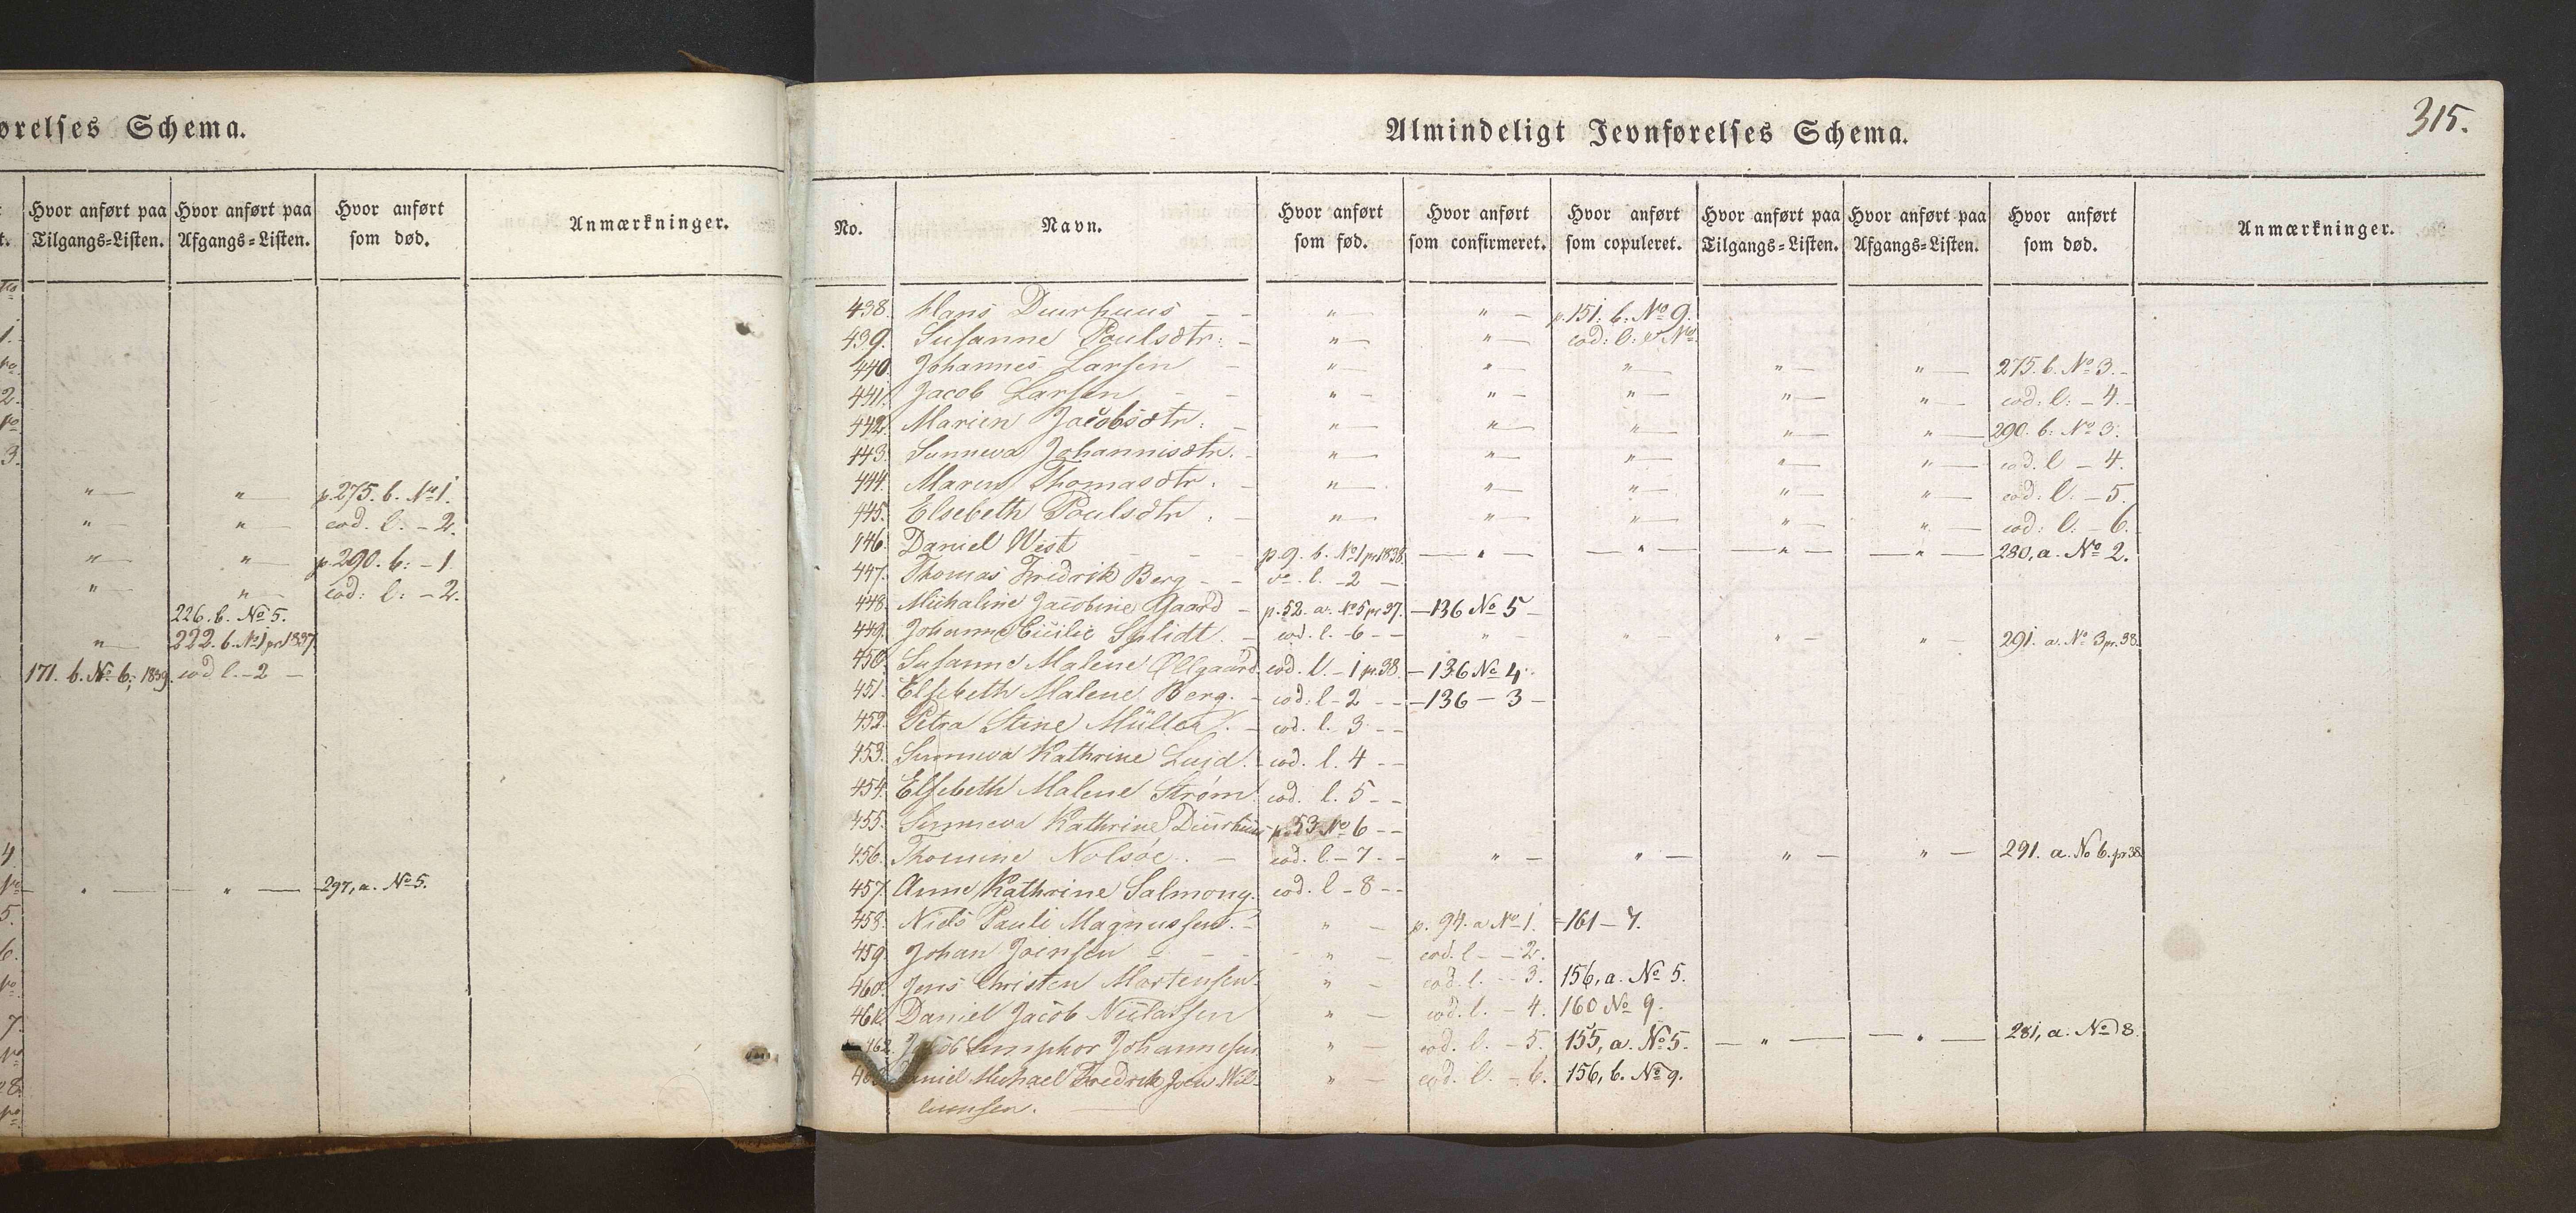 ørelses Schema.
Hvor anført paa Tilgangs-Listen. Hvor anført paa Afgangs-Listen. Hvor anført som død. Anmærkninger.
" " p. 275. b. No 1.
" " eod. l. - 2.
" " p. 290. b: - 1
" " eod: l: - 2.
226. b. No 5.
" 222. b. No 1 pr 1837.
171. b. No 6; 1839. eod l. - 2 -
" " 297, a. No 5.
315.
Almindeligt Jevnførelses Schema.
No. Navn. Hvor anført som fød. Hvor anført som confirmeret. Hvor anført som copuleret. Hvor anført paa Tilgangs-Listen. Hvor anført paa Afgangs-Listen. Hvor anført som død. Anmærkninger.
438. Hans Duurhuus - - " " p. 151. b. No 9.
439. Susanne Poulsdtr: - " " eod: l: & No
440. Johannes Larsen - " " " " " 275. b. No 3. -
441. Jacob Larsen - - " " " " " eod: l: - 4. -
442. Marien Jacobsdtr. - " " " " " 290. b: No 3.
443. Sunneva Johannisdtr. - " " " " " eod. l - 4.
444. Maren Thomasdtr. " " " " " eod: l: - 5.
445. Elsebeth Poulsdtr. - " " " " " eod: l: - 6.
446. Daniel West - - - p. 9. b. No 1 pr 1838. " " " " 280, a. No 2.
447. Thomas Fredrik Berg - - do. l. - 2 -
448. Michaline Jacobine Gaard - p. 52. a. No 5 pr 37. - 136 No 5 -
449. Johanne Cicilie Splidt. - eod. l. - 6 - - " " " " 291. a. No 3 pr. 38.
450. Susanne Malene Øllgaard eod. l. - 1 pr. 38. - 136 No 4.
451. Elsebeth Malene Berg. - eod: l - 2 - - 136 - 3 -
452. Petra Stine Müller. - eod. l. 3 - -
453. Sunneva Kathrine Luid. - eod. l. 4 - -
454. Elsebeth Malene Strøm. eod. l. 5 - -
455. Sunneva Kathrine Duurhuus p. 53 No 6 - -
456. Thomine Nolsøe. - eod. l - 7 - - " " " " 291. a. No 6. pr 38
457. Anne Kathrine Salmony. eod. l - 8 - -
458. Niels Pauli Magnussen. - " - p. 94. a No 1. - 161 - 7.
459. Johan Joensen - - - " - eod. l - - 2.
460. Jens Christen Mortensen. " - eod. l. - - 3. 156, a. No 5.
461. Daniel Jacob Niclassen " - eod. l. - 4. 160 No 9.
462. Jacob Johannesen " - eod. l. - 5. 155, a. No 5. " " 281, a. No 8.
Daniel Michael Fredrik Joen Wil- " - eod. l. - 6. 156, b. No 9.
lumsen.